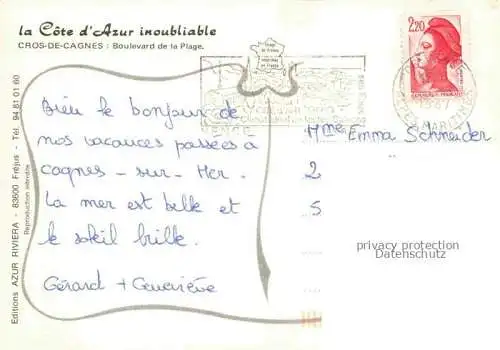 la Côte d'Azur inoubliable
CROS-DE-CAGNES : Boulevard de la Plage.
2,20
VENCE
Bien le bonjour de
nos vacances passées à
cagnes - sur - Mer.
La mer est belle et
le soleil brille.
Gérard + Geneviève
Mme Emma Schneider
2
S
privacy protection
Datenschutz
Editions AZUR RIVIERA - 83600 Fréjus - Tél. 94 81 01 60
Reproduction interdite